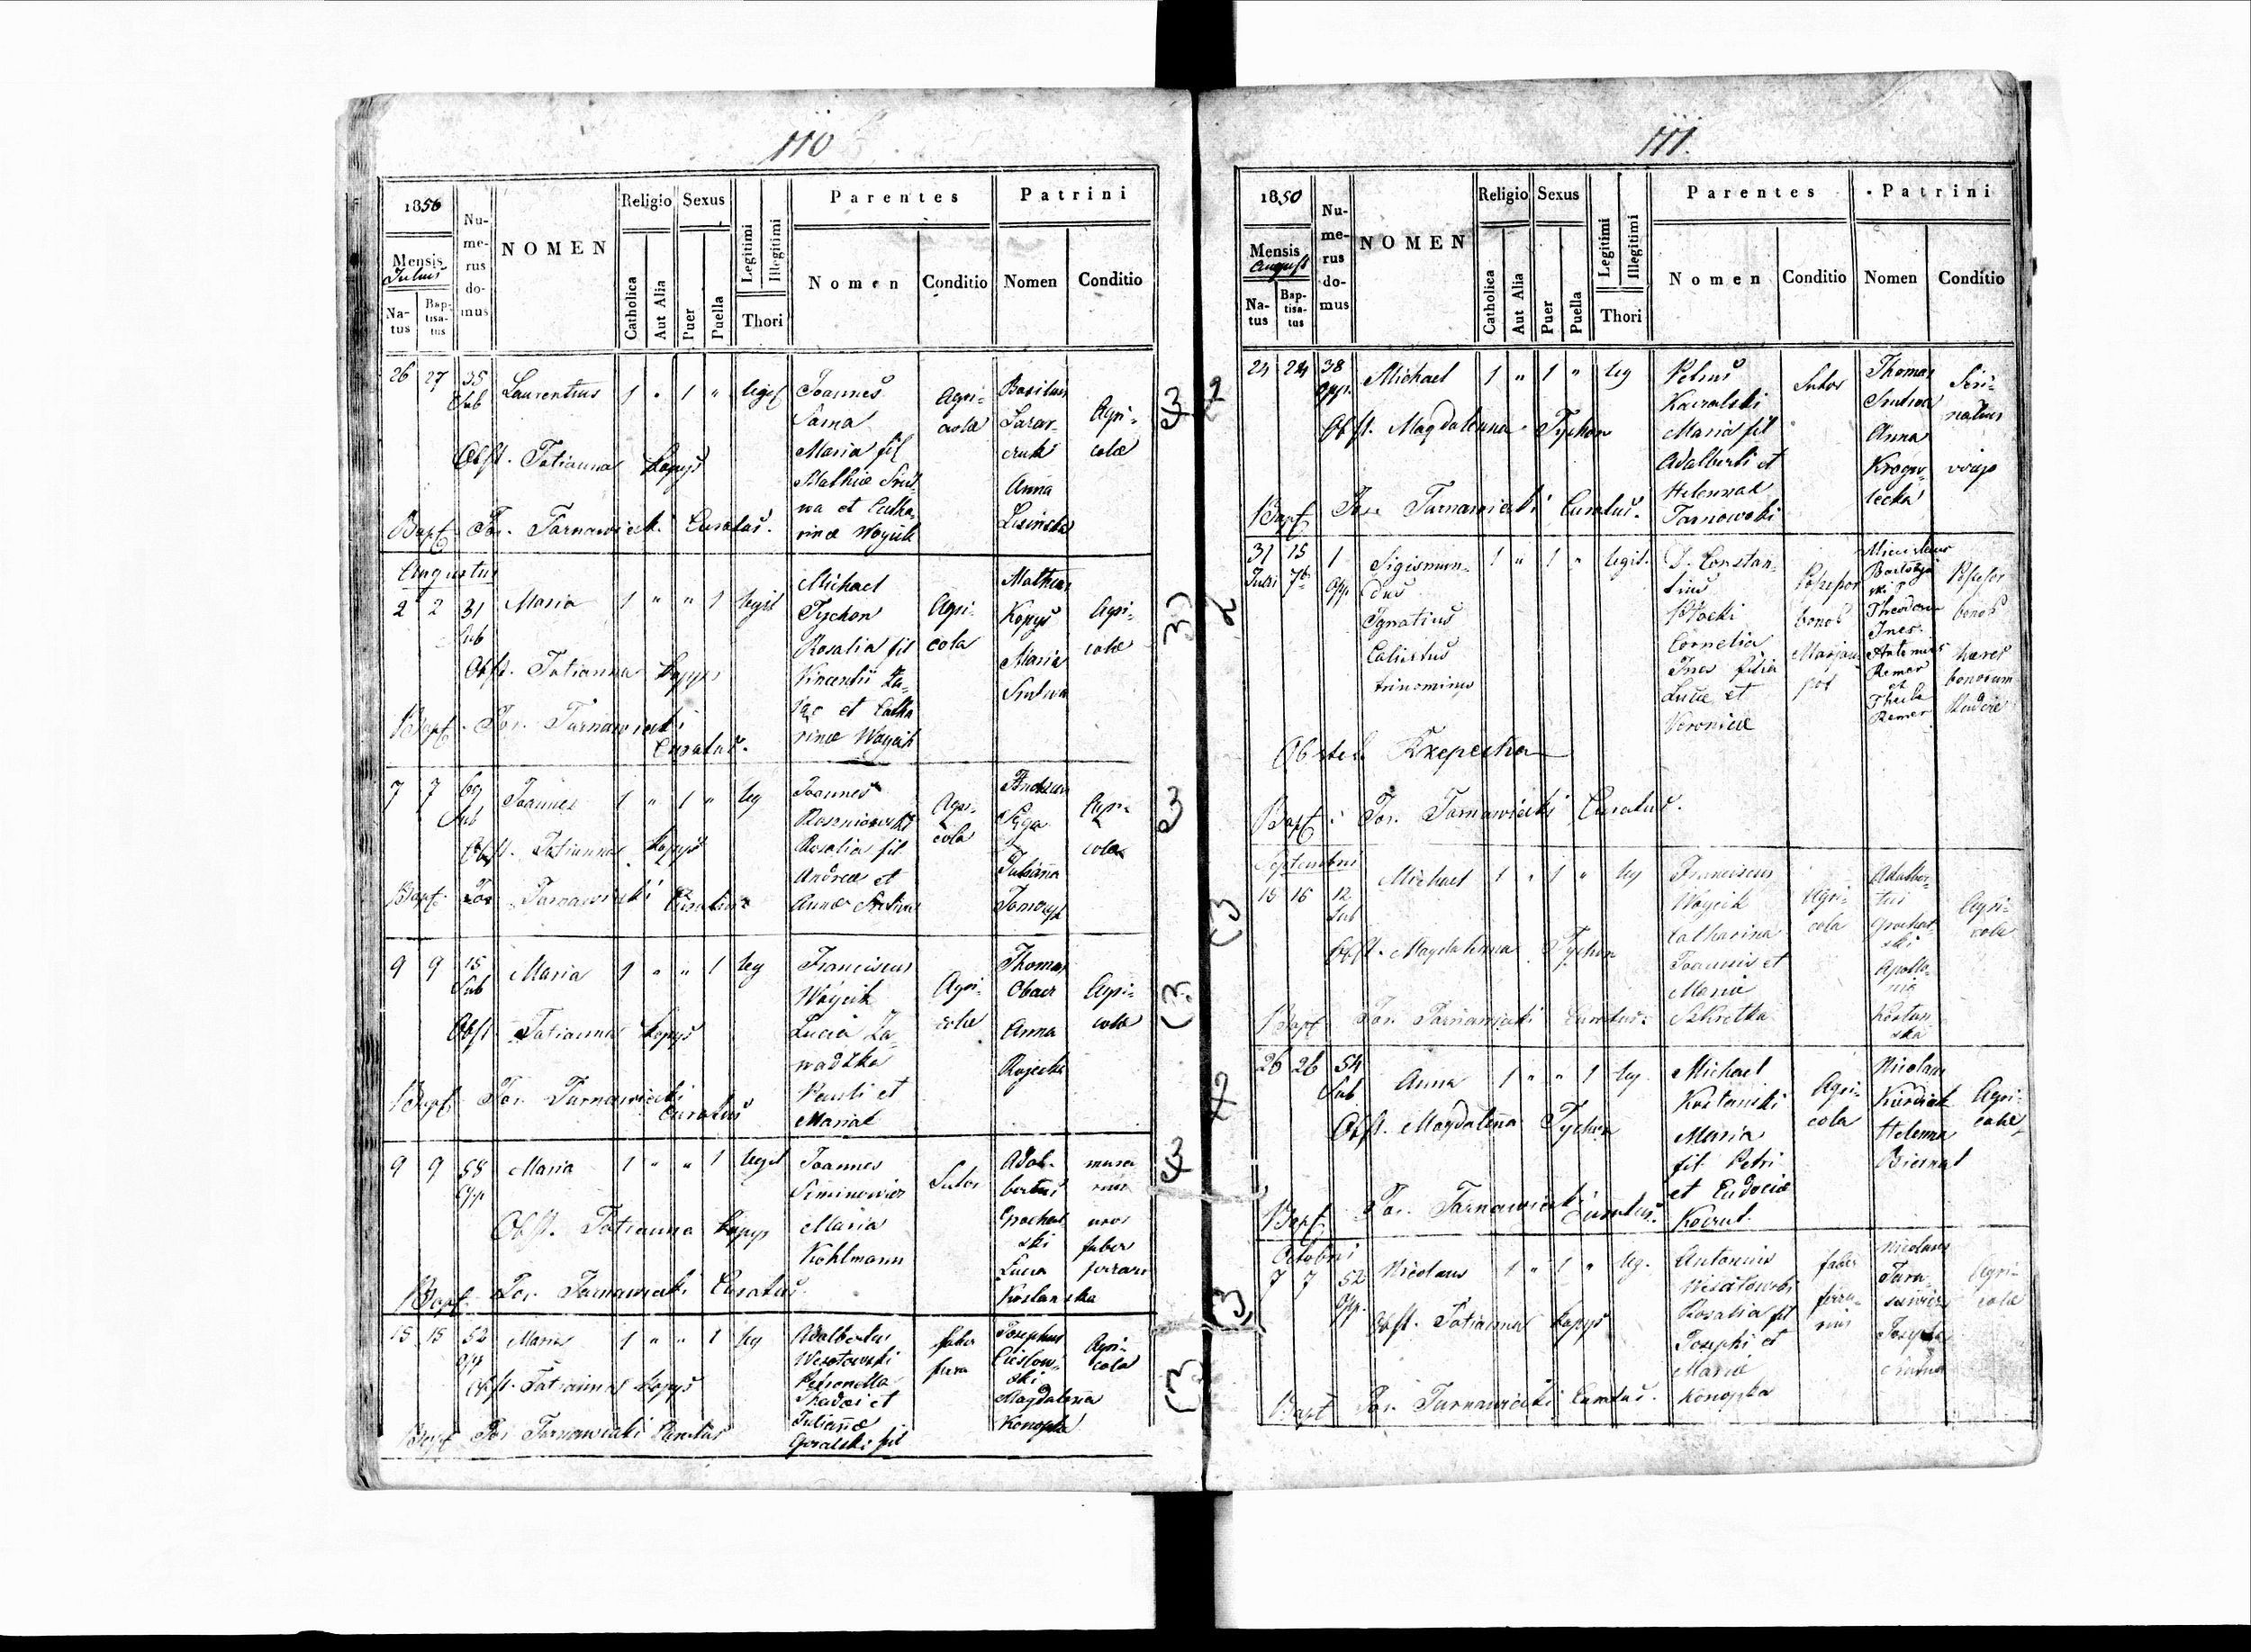 110
1850
Mensis
Julius
Natus
Baptisatus
Numerus domus
NOMEN
Religio
Catholica
Aut Alia
Sexus
Puer
Puella
Legitimi
Illegitimi
Thori
Parentes
Nomen
Conditio
Patrini
Nomen
Conditio
26 27 35 Sub
Laurentius 1 " 1 "
Joannes
Sama
Maria fil
Mathiæ
na et Catha-
rinæ Woycik
Agri-
cola
Basilius
Lazar-
czuk
Anna
Lisinska
Agri-
colæ
Obst. Tatianna Kopys
Bapt. Jos. Tarnawiecki Curatus.
Augustus
2 2 31 Sub
Maria 1 " " 1 legit
Michael
Tychon
Rosalia fil
Vincentii Za-
jąc et Catha
rinæ Woycik
Agri-
cola
Mathias
Kopys
Maria
Smtwa
Agri-
colæ
Obst. Tatianna Kopys
Bapt. Jos. Tarnawiecki
Curatus.
7 7 69 Sub
Joannes 1 " 1 " leg
Joannes
Rosalia fil
Andreæ et
Annæ
Agri-
cola
Andreas
Juliana
Agri-
colæ
Obst. Tatianna Kopys
Bapt. Jos. Tarnawiecki Curatus
9 9 15 Sub
Maria 1 " " 1 leg
Franciscus
Woycik
Lucia Za-
wadzka
Pauli et
Mariæ
Agri-
cola
Thomas
Anna
Agri-
colæ
Obst Tatianna Kopys
Bapt. Jos. Tarnawiecki
Curatus
9 9 58 Opp
Maria 1 " " 1 legit
Joannes
Siminowicz
Maria
Kohlmann
Sutor
Adal-
bertus
Grochol
ski
Lucia
Koslanska
mura
rius
uxor
fabri
ferrari
Obst. Tatianna Kopys
Bapt. Jos. Tarnawiecki Curatus.
15 15 52 Opp
Maria 1 " " 1 leg
Adalbertus
Wesołowski
Petronella
Thadæi et
Juliannæ
Goralski fil
faber
ferra
Josephus
Cieslow-
ski
Magdalena
Konopka
Agri-
cola
Obst. Tatianna Kopys
Bapt Jos Tarnawiecki Curatus
111.
1850
Mensis
August
Natus
Baptisatus
Numerus domus
NOMEN
Religio
Catholica
Aut Alia
Sexus
Puer
Puella
Legitimi
Illegitimi
Thori
Parentes
Nomen
Conditio
Patrini
Nomen
Conditio
24 24 38 Opp.
Michael 1 " 1 " leg
Petrus
Kawalski
Maria fil
Adalberti et
Helennæ
Tarnowski
Sutor
Thomas
Anna
Obst. Magdalenna Tychon
Bapt Jos. Tarnawiecki Curatus.
31 Julii 15 7b 1 Opp
Sigismun-
dus
Ignatius
Calixtus
trinominis
1 " 1 " legit.
D. Constan-
tius
Cornelia
Ines filia
Luciæ et
Veronicæ
bonor
Theodora
Ines.
Antonius
Remer
et
Thecla
Remer
bonor
hæres
bonorum
Obstet.
Bapt: Jos. Tarnawiecki Curatus.
Septembris
15 16 12 Sub
Michael 1 " 1 " leg
Franciscus
Woycik
Catharina
Joannis et
Maria
Szkrotka
Agri-
cola
Adalber-
tus
Grochol-
ski
Apollo-
nia
Koslan
ska
Agri-
colæ
Obst. Magdalenna Tychon
Bapt Jos. Tarnawiecki Curatus.
26 26 54 Sub
Anna 1 " " 1 leg
Michael
Kostanski
Maria
fil Petri
et Eudociæ
Agri-
cola
Nicolaus
Kurdiak
Helenna
Biernat
Agri-
colæ
Obst. Magdalena Tychon
Bapt Jos. Tarnawiecki Curatus.
Octobris
7 7 52 Opp.
Nicolaus 1 " 1 " leg.
Antonius
Wesołowski
Rosalia fil
Josephi et
Mariæ
Konopka
faber
ferra-
rius
Nicolaus
Josepha
Agri-
colæ
Obst. Tatianna Kopys
Bapt Jos. Tarnawiecki Curatus.